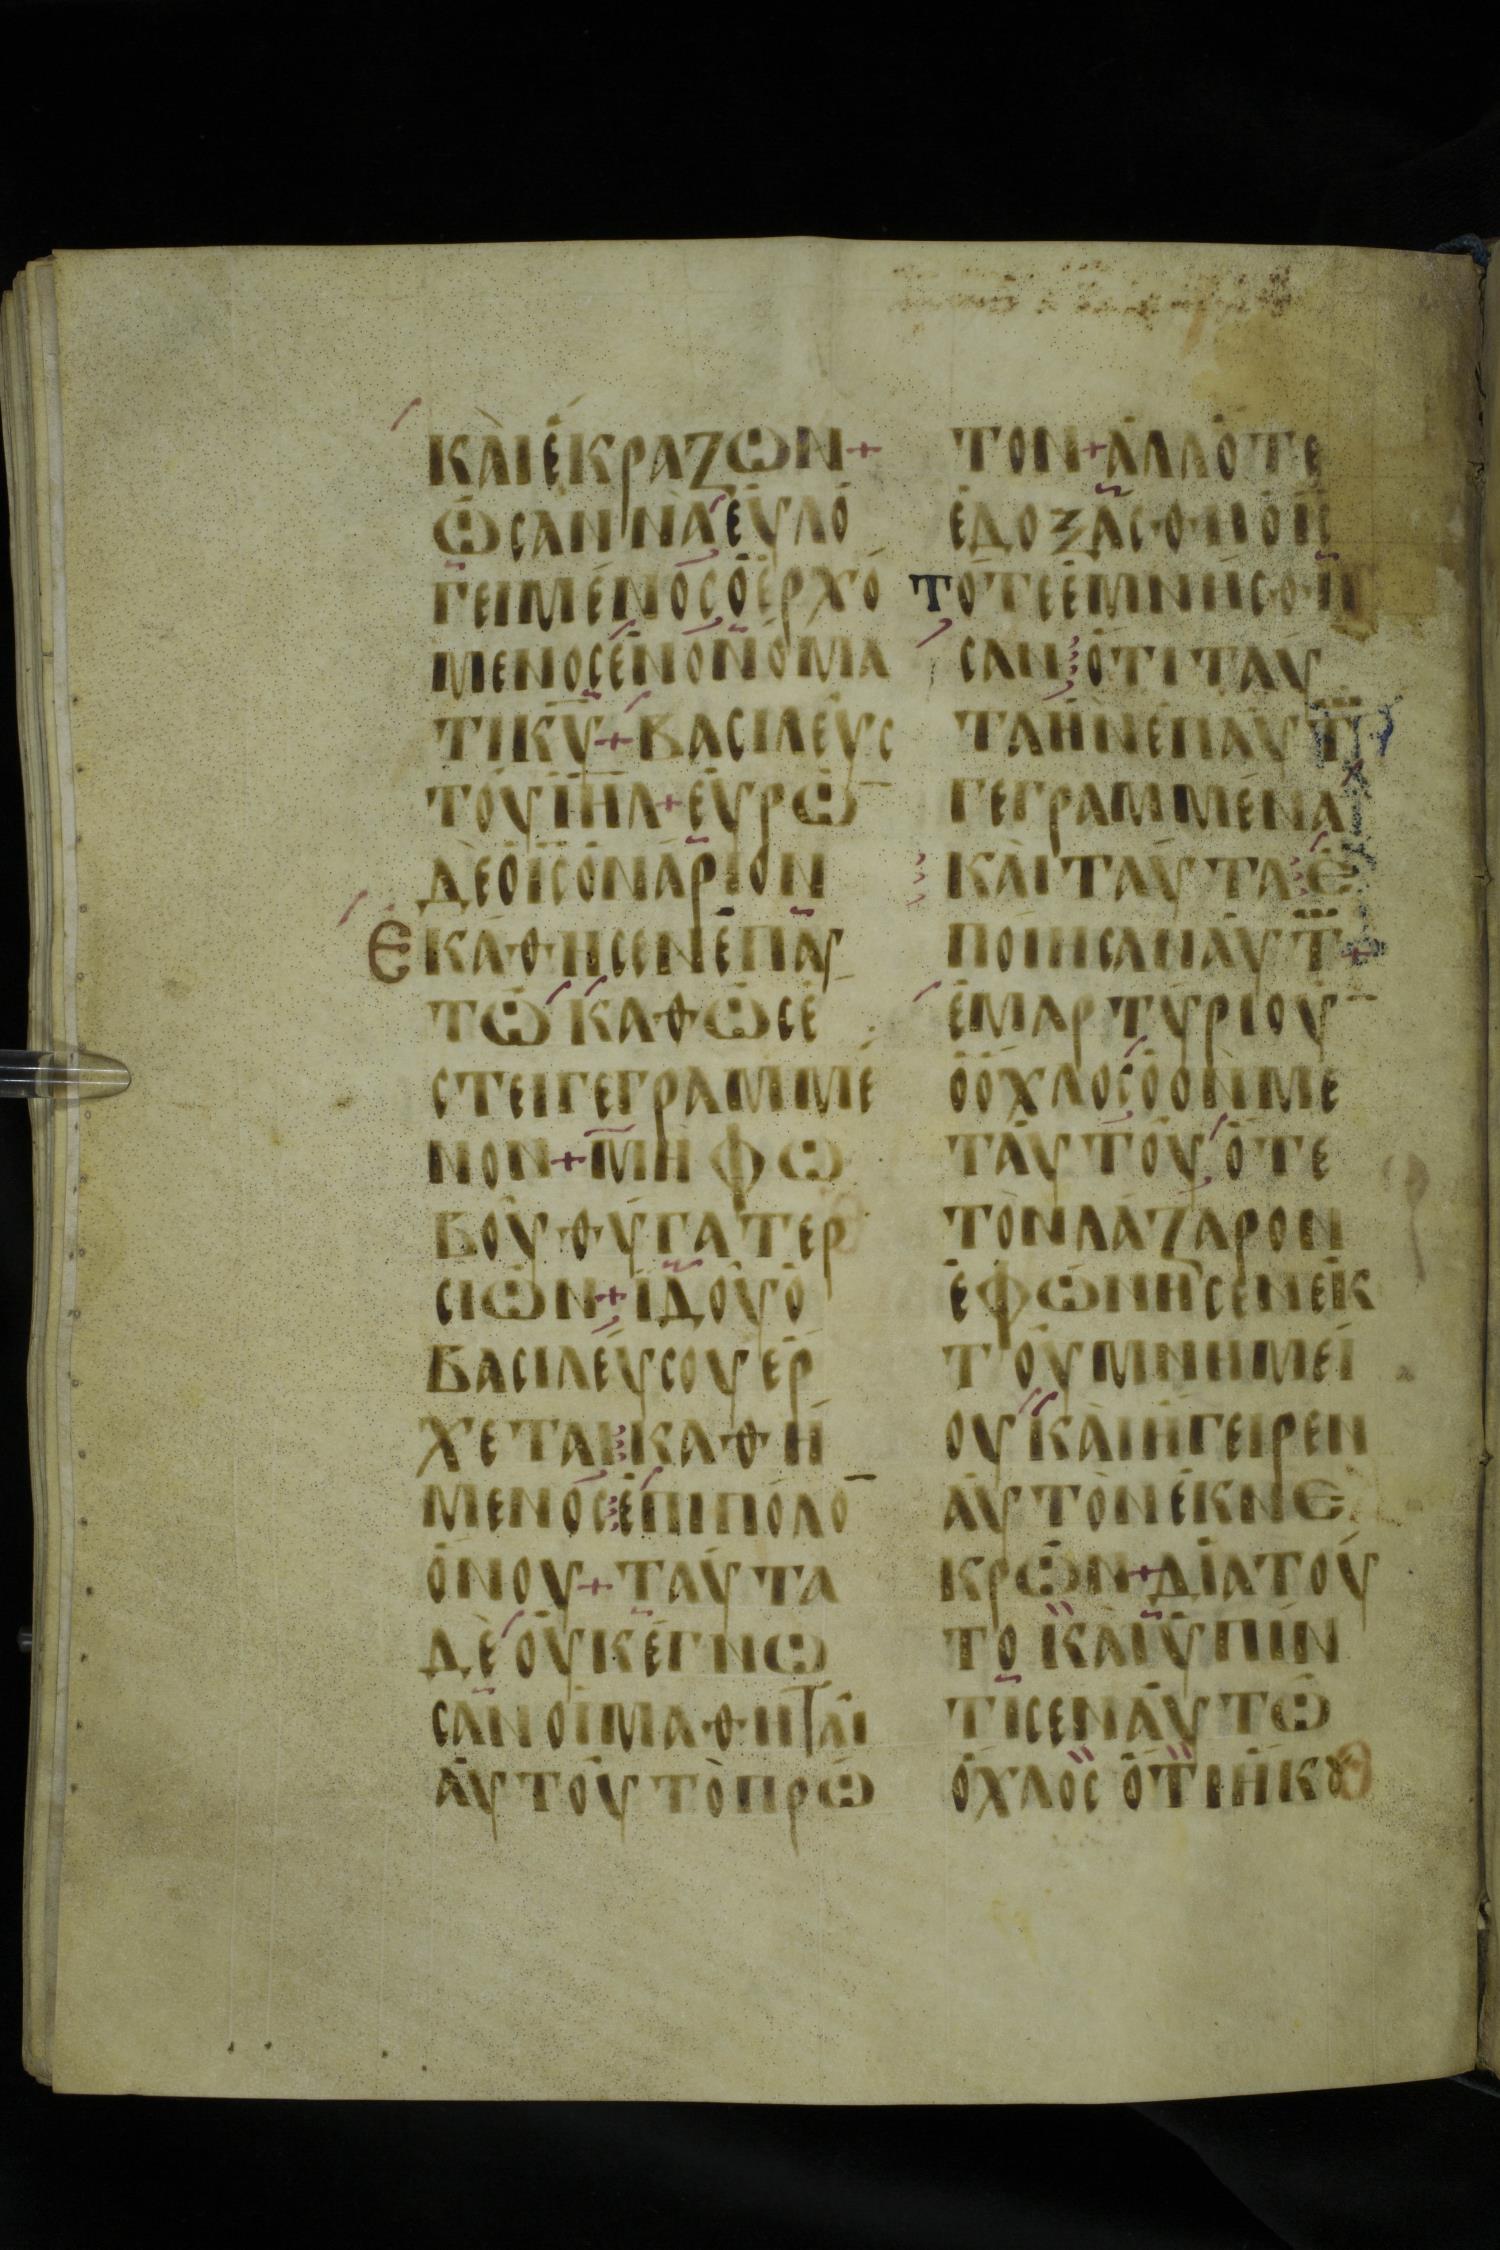 ΚΑΙΕΚΡΑΖΩΝ+
ΩCΑΝΝΑΕΥΛΟ
ΓΕΙΜΕΝΟCΟΕΡΧΟ
ΜΕΝΟCΕΝΟΝΟΜΑ
ΤΙΚΥ+ΒΑCΙΛΕΥC
ΤΟΥΙΗΛ+ΕΥΡΩ̄
ΔΕΟΙCΟΝΑΡΙΟΝ
ΕΚΑΘΗCΕΝΕΠΑΥ
ΤΩΚΑΘΩCΕ
CΤΕΙΓΕΓΡΑΜΜΕ
ΝΟΝ+ΜΗΦΩ
ΒΟΥΘΥΓΑΤΕΡ
CΙΩΝ+ΙΔΟΥΟ
ΒΑCΙΛΕΥCΟΥΕΡ
ΧΕΤΑΙΚΑΘΗ
ΜΕΝΟCΕΠΙΠΟΛΟ̄
ΟΝΟΥ+ΤΑΥΤΑ
ΔΕΟΥΚΕΓΝΩ
CΑΝΟΙΜΑΘΗΤΑΙ
ΑΥΤΟΥΤΟΠΡΩ
ΤΟΝ+ΑΛΛΟΤΕ
ΕΔΟΞΑCΘΗΟΙC
ΤΟΤΕΕΜΝΗCΘΗ
CΑΝΟΤΙΤΑΥ
ΤΑΗΝΕΠΑΥΤ
ΓΕΓΡΑΜΜΕΝΑ
ΚΑΙΤΑΥΤΑΕ
ΠΟΙΗCΑΝΑΥΤ+
ΕΜΑΡΤΥΡΙΟῩ
ΟΟΧΛΟCΟΟΝΜΕ
ΤΑΥΤΟΥΟΤΕ
ΤΟΝΛΑΖΑΡΟΝ
ΕΦΩΝΗCΕΝΕΚ
ΤΟΥΜΝΗΜΕΙ
ΟΥΚΑΙΗΓΕΙΡΕΝ
ΑΥΤΟΝΕΚΝΕ
ΚΡΩΝ+ΔΙΑΤΟΥ
ΤΟΚΑΙΥΠΗΝ
ΤΙCΕΝΑΥΤΩ
ΟΧΛΟCΟΤΙΗΚΟΥ